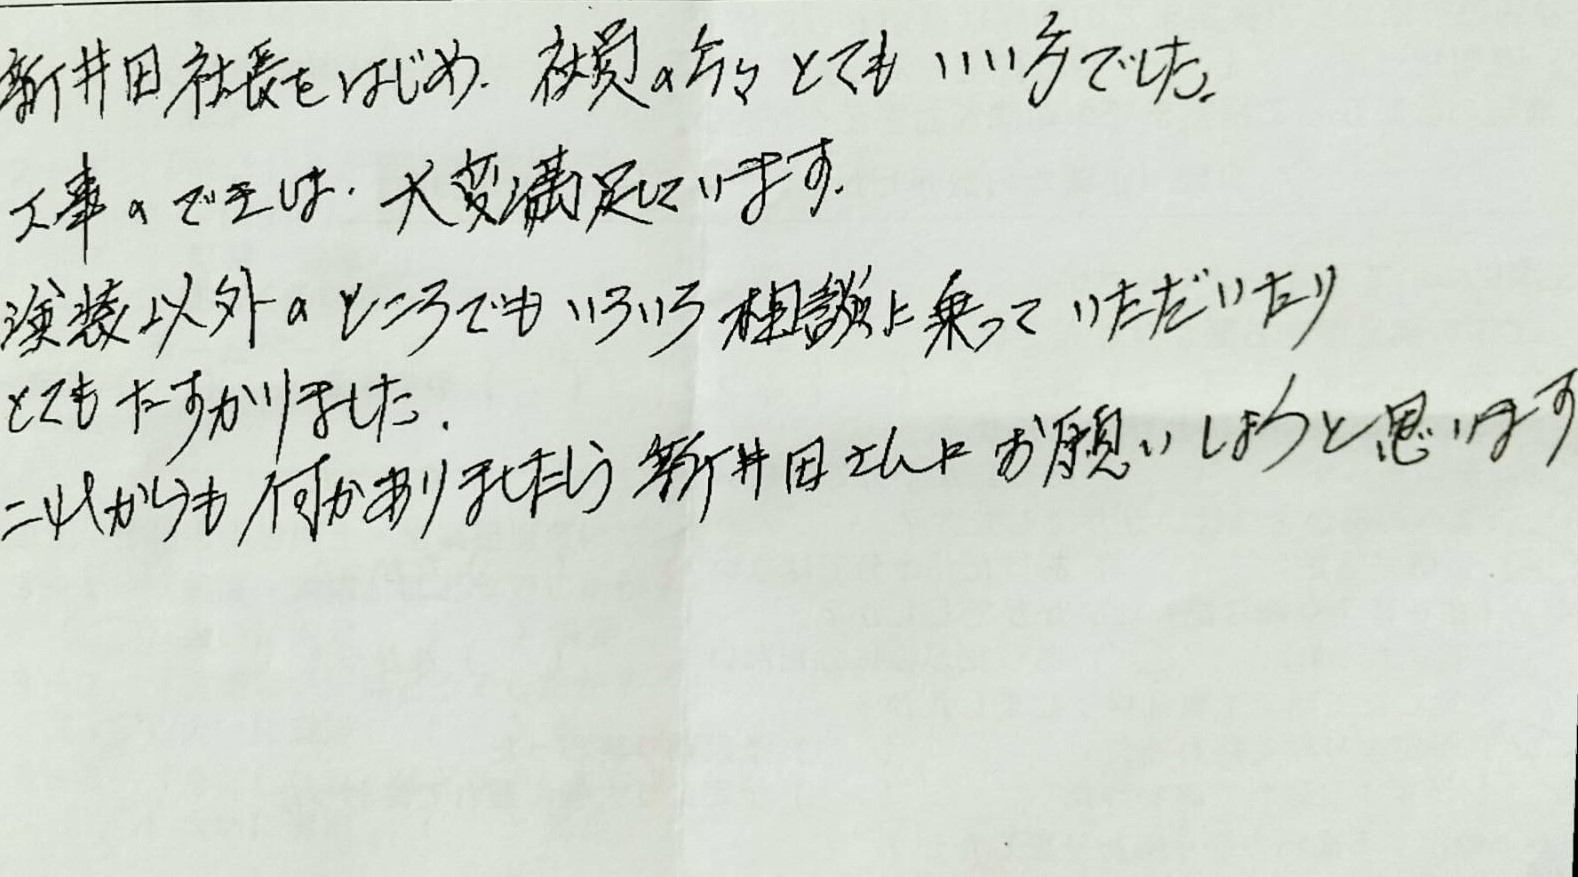 新井田社長をはじめ、社員の方々とてもいい方でした。
工事のできは、大変満足しています。
塗装以外のところでもいろいろ相談に乗っていただいたり
とてもたすかりました。
これからも何かありましたら新井田さんにお願いしようと思います